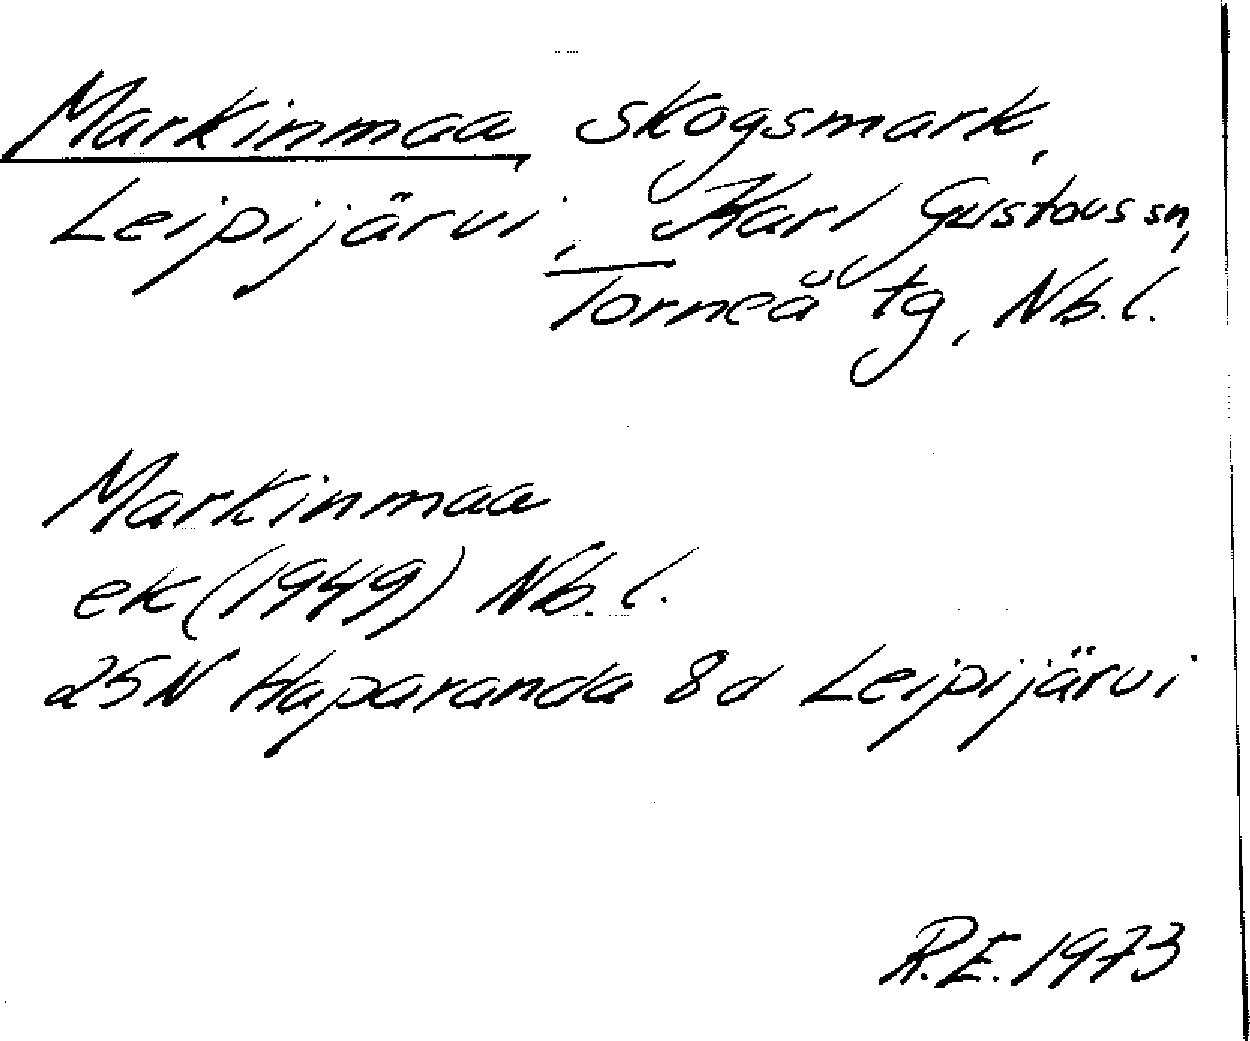 Markinmaa, skogsmark,
Leipijärvi, Karl Gustavs sn,
Torneå tg, Nb.l.
Markinmaa
ek (1949) Nb.l.
25N Haparanda 8d Leipijärvi
R.E. 1973